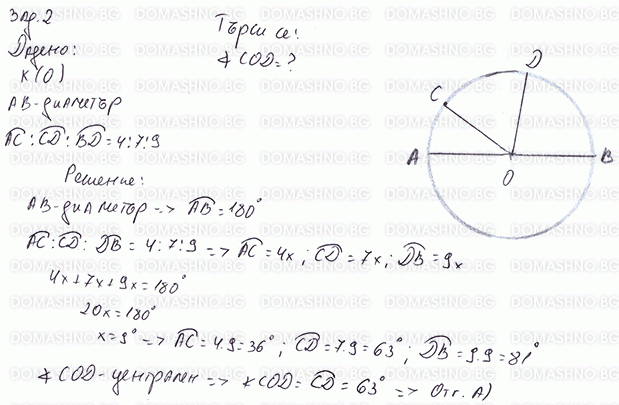 Зад. 2
Дадено:
k(O)
AB-диаметър
A͡C : C͡D : B͡D = 4:7:9
Търси се:
∢COD = ?
Решение:
AB-диаметър => A͡B = 180°
A͡C : C͡D : D͡B = 4:7:9 => A͡C = 4x ; C͡D = 7x ; D͡B = 9x
4x+7x+9x=180°
20x=180°
x=9° => A͡C = 4.9=36° ; C͡D = 7.9=63° ; D͡B = 9.9=81°
∢COD-централен => ∢COD = C͡D = 63° => Отг. А)
D
C
A
B
O
DOMASHNO.BG